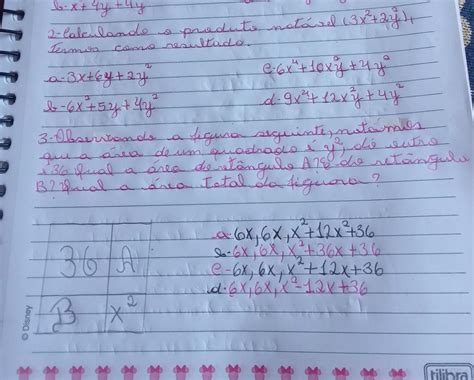 b- x+4y+4y
2-Calculando o produto notável (3x²+2y)²,
temos como resultado.
a-3x+6y+2y²
c-6x⁴+10x²y+4y²
b-6x²+5y+4y²
d-9x⁴+12x²y+4y²
3-Observando a figura seguinte, notamos
que a área de um quadrado é y², do outro
é 36 qual a área do retângulo A? E do retângulo
B? Qual a área total da figura?
36 A
B x²
a-6x,6x,x²+12x²+36
b-6x,6x,x²+36x+36
c-6x,6x,x²+12x+36
d-6x,6x,x²-12x+36
© Disney
tilibra